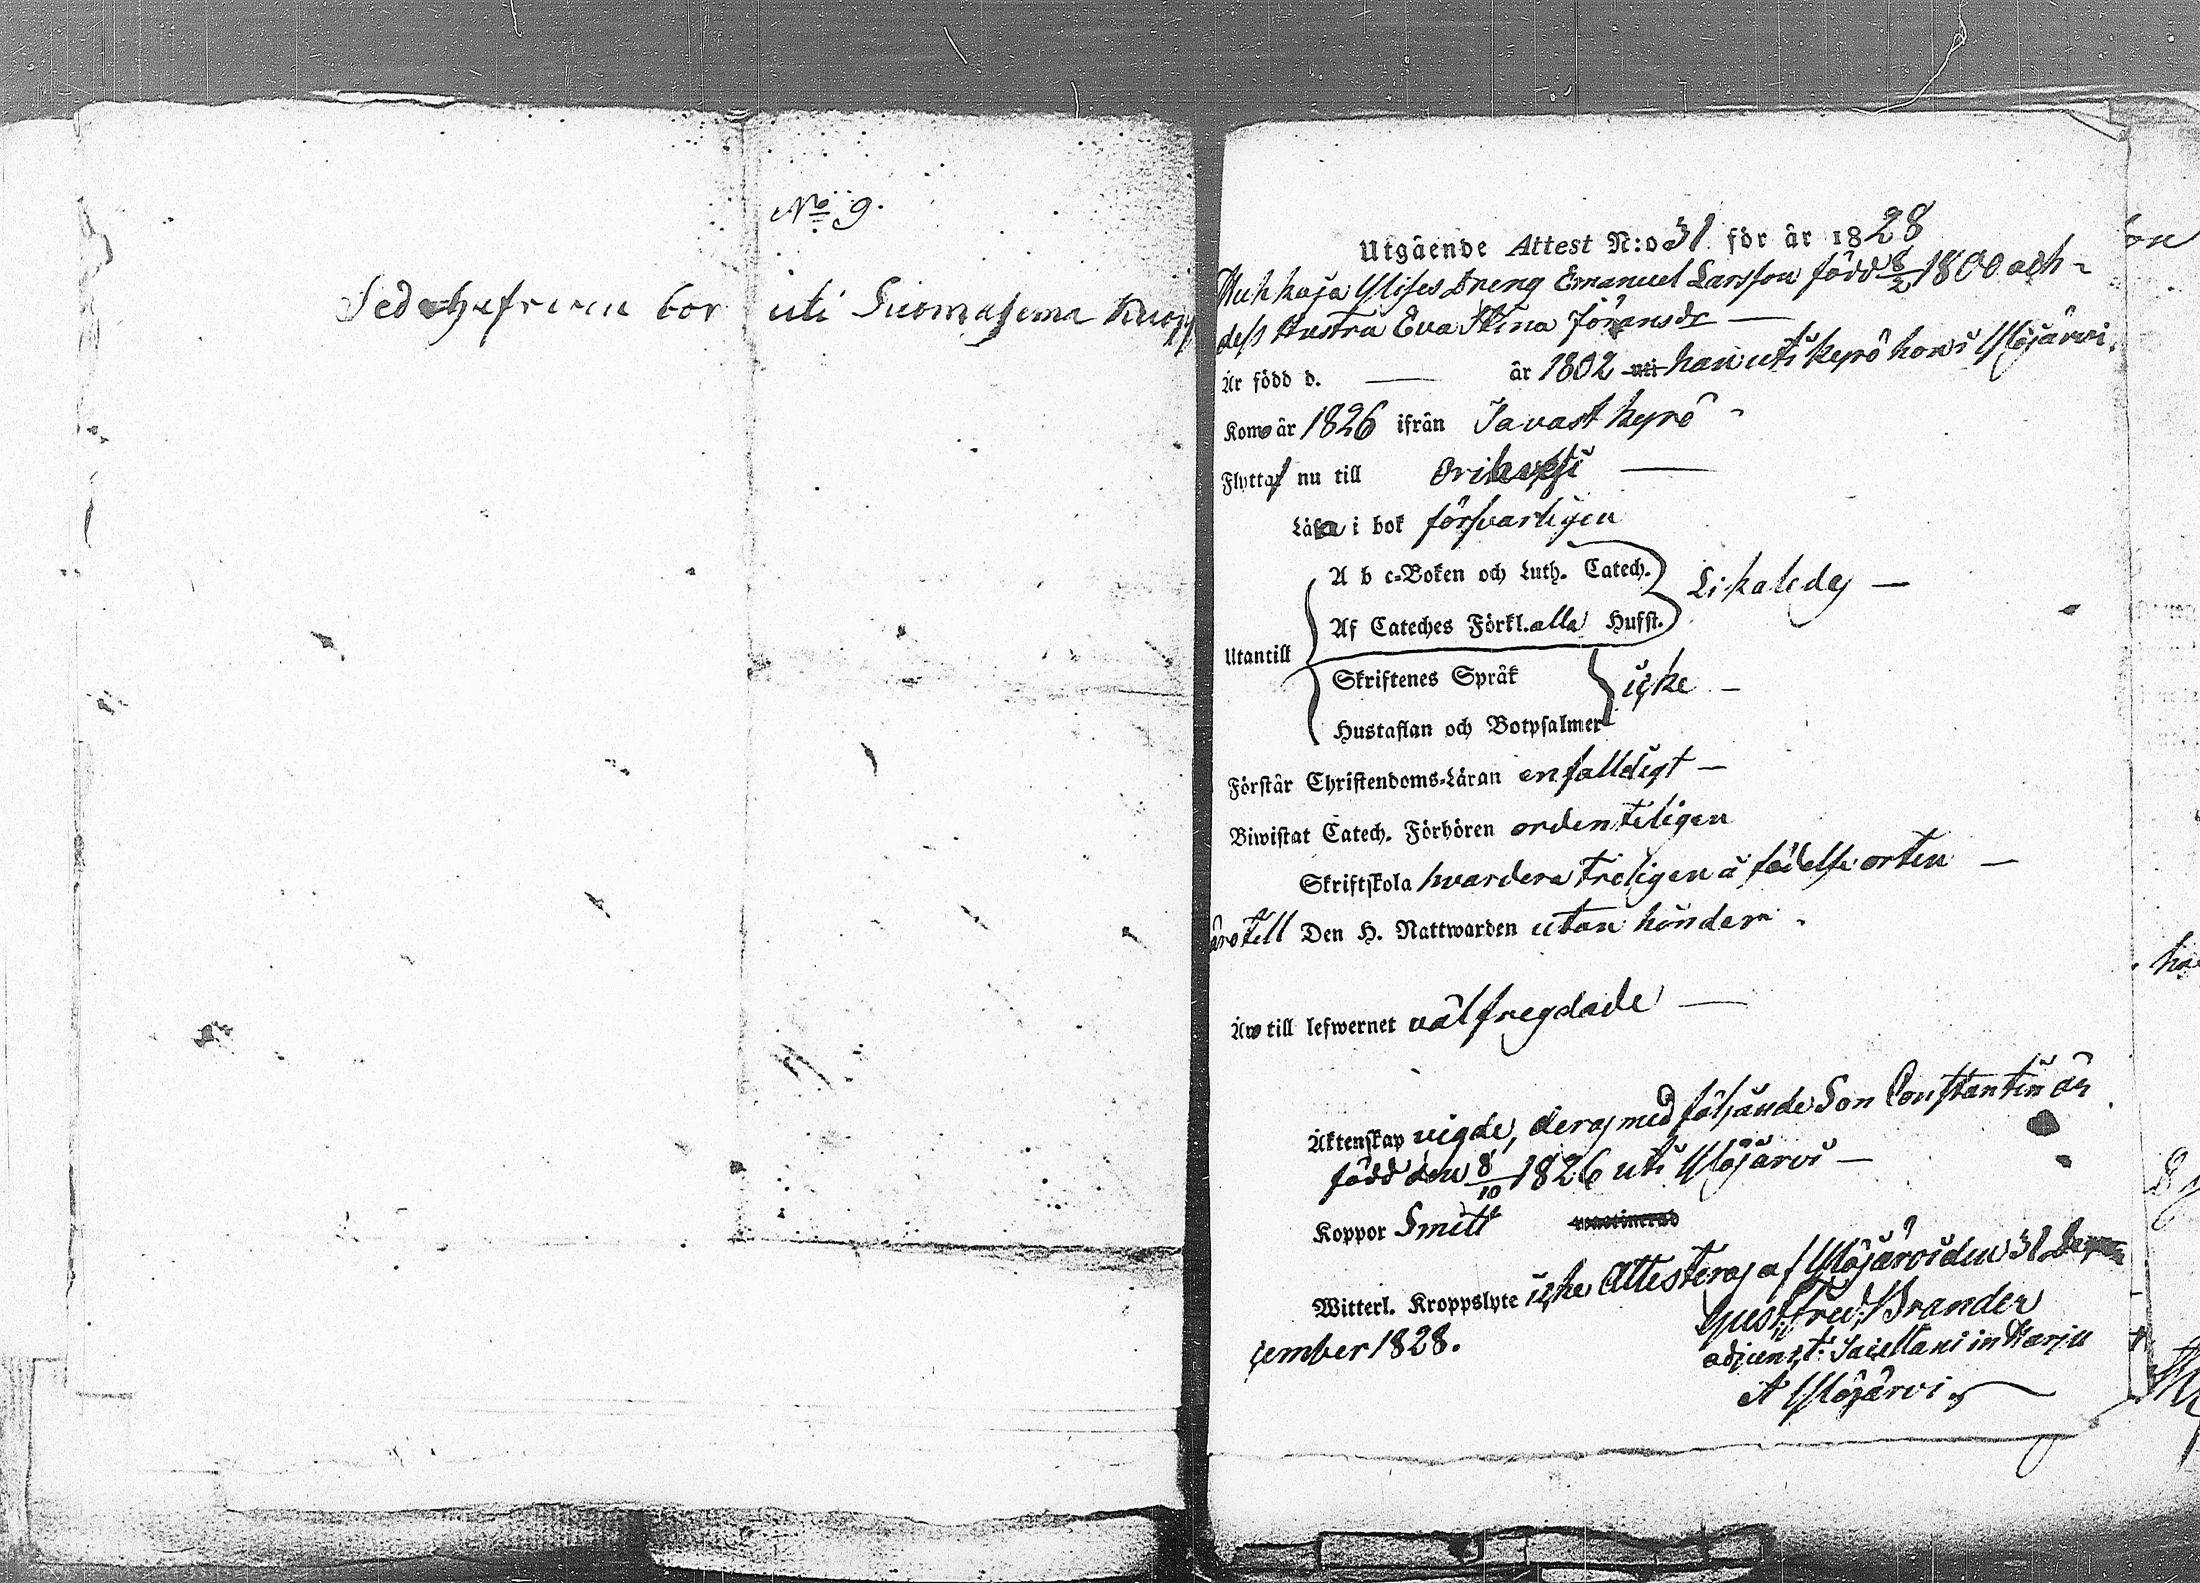 No 9.
Sedohefvaren bor uti Suomasema
Utgående Attest N:o 31 för år 1828
Huhkaja Ylises Dreng Emanuel Larsson född 8/2 1800 och
dess Hustra Eva Stina Jöransdr —
Är född d. — år 1802 uti han uti Kyrö hon i Ylöjärvi.
Kom år 1826 ifrån Tavastkyrö
Flyttas nu till Orihvesi —
Läsa i bok försvarligen
A b c-Boken och Luth. Catech.
Likaledes —
Af Cateches Förkl. alla Hufst.
Utantill
Skriftenes Språk
icke —
Hustaflan och Botpsalmer
Förstår Christendoms-Läran enfalldigt —
Biwistat Catech. Förhören ordenteligen
Skriftskola hvardera troligen å födelse orten —
äro till Den H. Nattwarden utan hinder.
Äro till lefwernet välfregdade —
Äktenskap vigde, deras medföljande Son Constantin är
född den 8/10 1826 uti Ylöjärvi —
Koppor Smitt
Witterl. Kroppslyte icke Attesteras af Ylöjärvi den 31 De
cember 1828.
Gust. Fred. Brander
adjunct. Sacellani in Harju
et Ylöjärvi